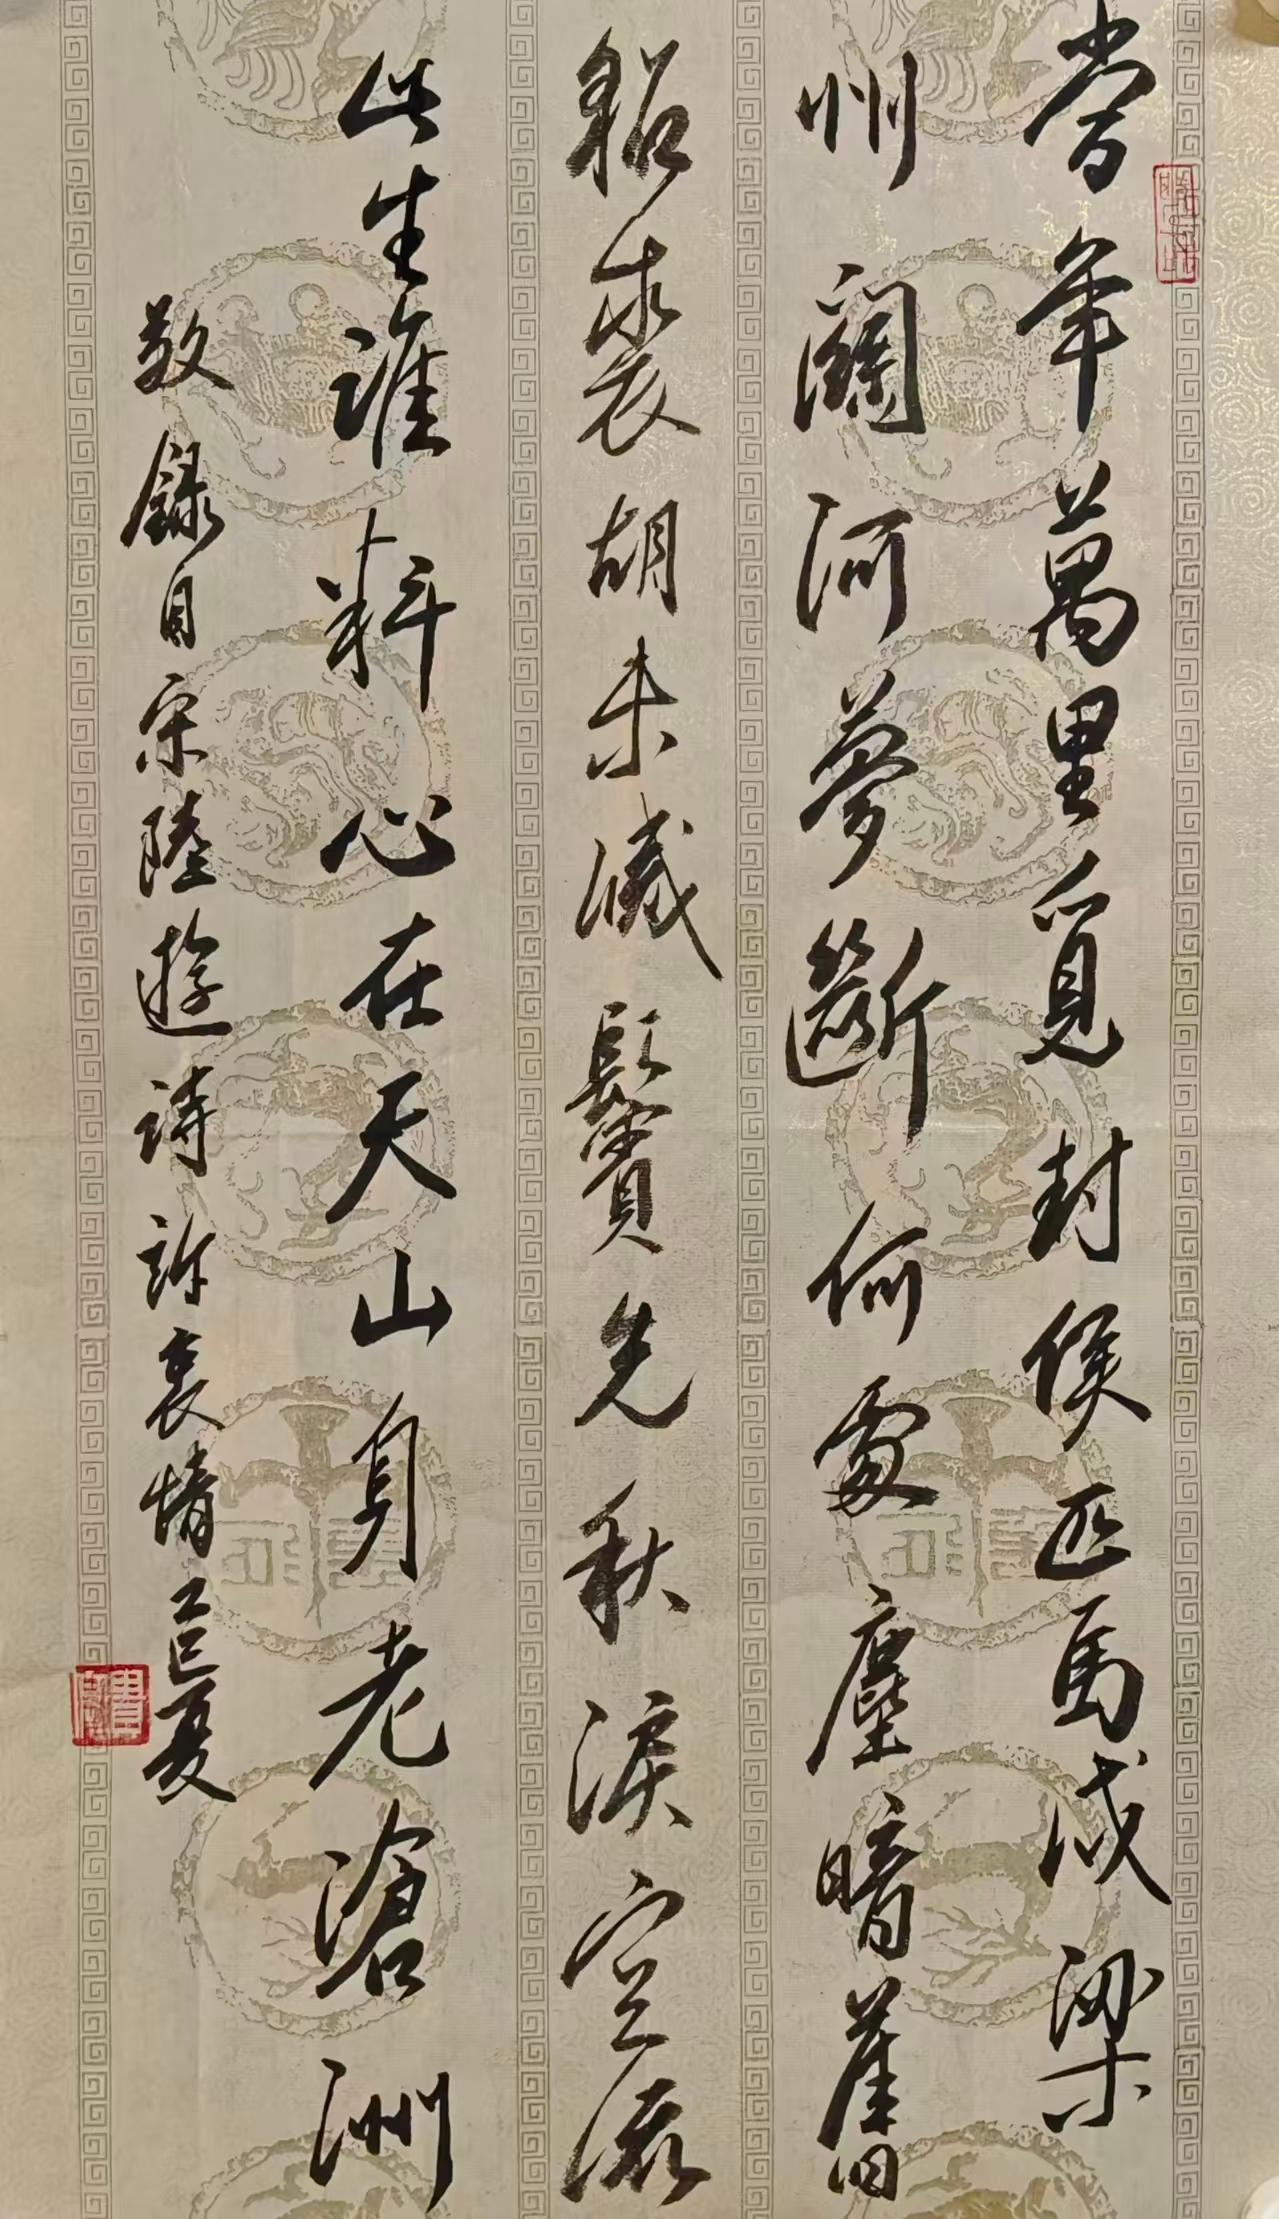 當年萬里覓封侯匹馬戍梁
州關河夢斷何處塵暗舊
貂裘胡未滅鬢先秋淚空流
此生誰料心在天山身老滄洲
敬錄自宋陸遊詩訴衷情 乙巳夏